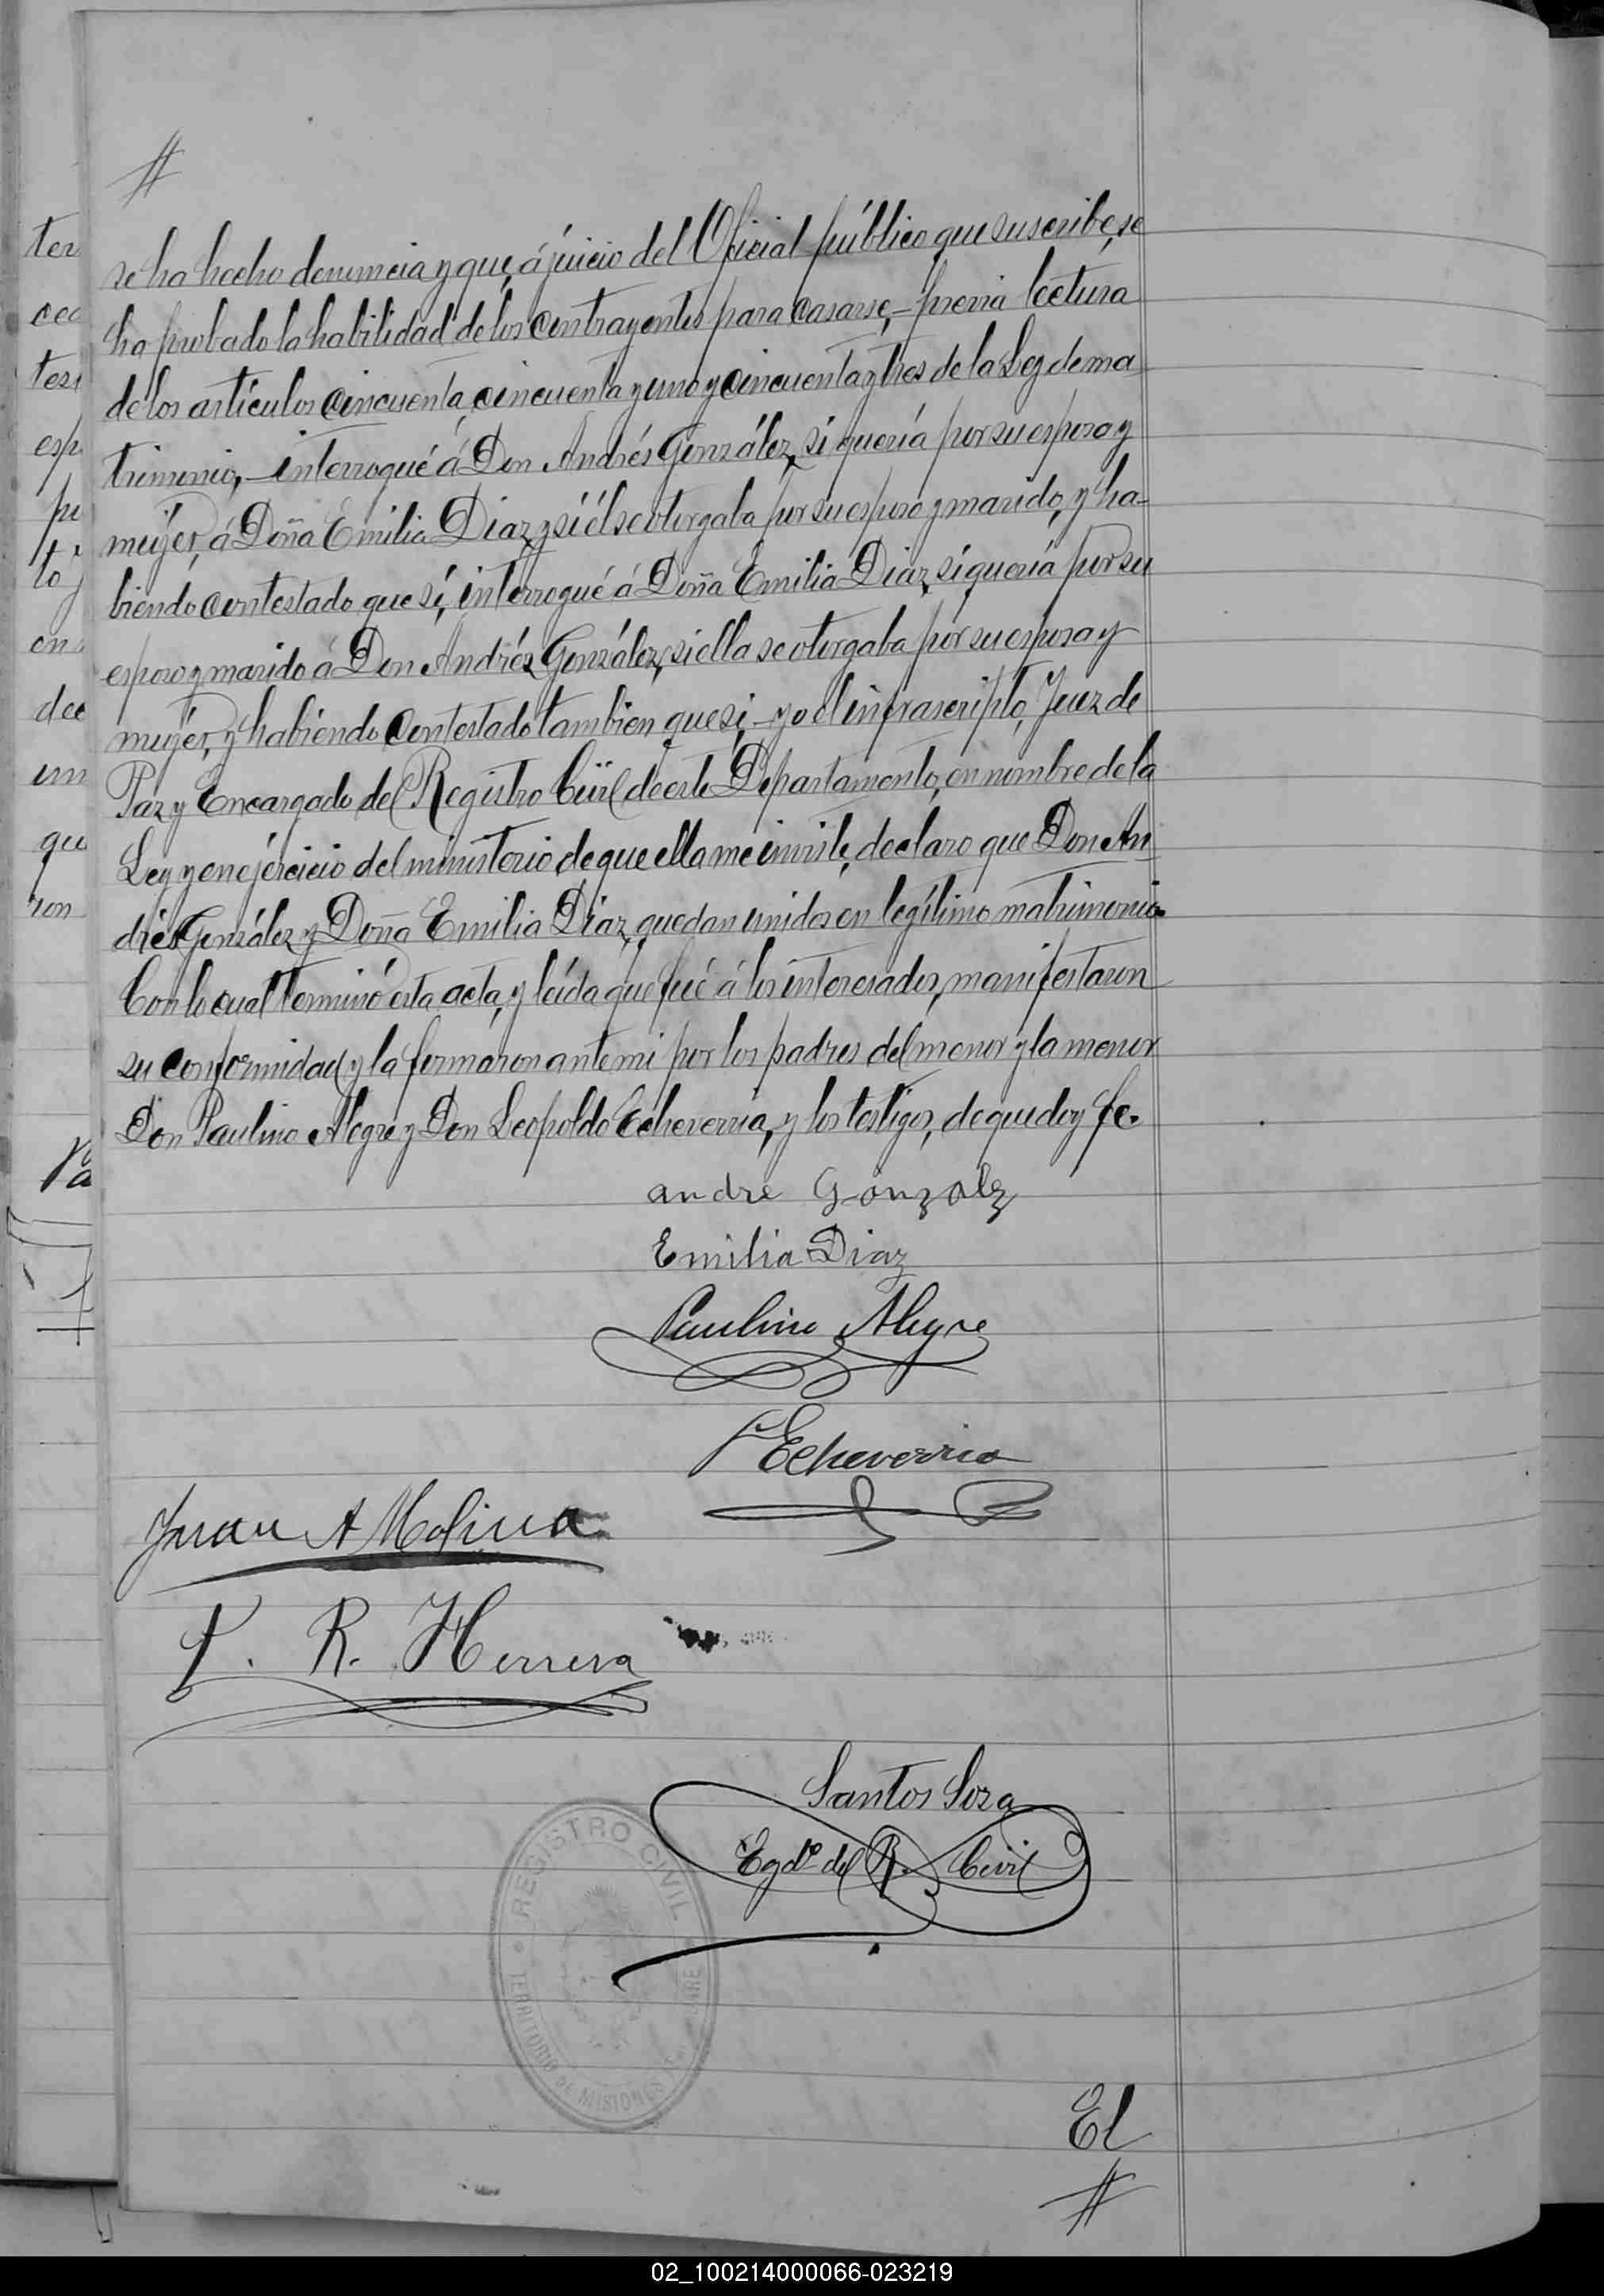 #
se ha hecho denuncia y que, á juicio del Oficial público que suscribe, se
ha probado la habilidad de los contrayentes para casarse,- previa lectura
de los artículos cincuenta, cincuenta y uno y cincuenta y tres de la Ley de ma
trimonio,- interrogué á Don Andrés González, si quería por su esposa y
mujer, á Doña Emilia Diaz, y si él se otorgaba por su esposo y marido, y ha-
biendo contestado que sí, interrogué á Doña Emilia Diaz, si quería por su
esposo y marido á Don Andrés González, si ella se otorgaba por su esposa y
mujer, y habiendo contestado tambien que sí,- yo el infrascripto, Juez de
Paz y Encargado del Registro Civil de este Departamento, en nombre de la
Ley y en ejercicio del ministerio de que ella me inviste, declaro que Don An
drés González y Doña Emilia Diaz, quedan unidos en legítimo matrimonio.
Con lo cual terminó esta acta, y leída que fué á los interesados, manifestaron
su conformidad y la firmaron ante mi por los padres del menor y la menor
Don Paulino Alegre y Don Leopoldo Echeverria, y los testigos, de que doy fe.
andre Gonzalez
Emilia Diaz
Paulino Alegre
Echeverria
Juan A Molina
R. Herrera
Santos Sosa
Egdo. del R. Civil
REGISTRO CIVIL
TERRITORIO DE MISIONES
El
#
ter
esp
en
dec
un
que
ron
02_100214000066-023219